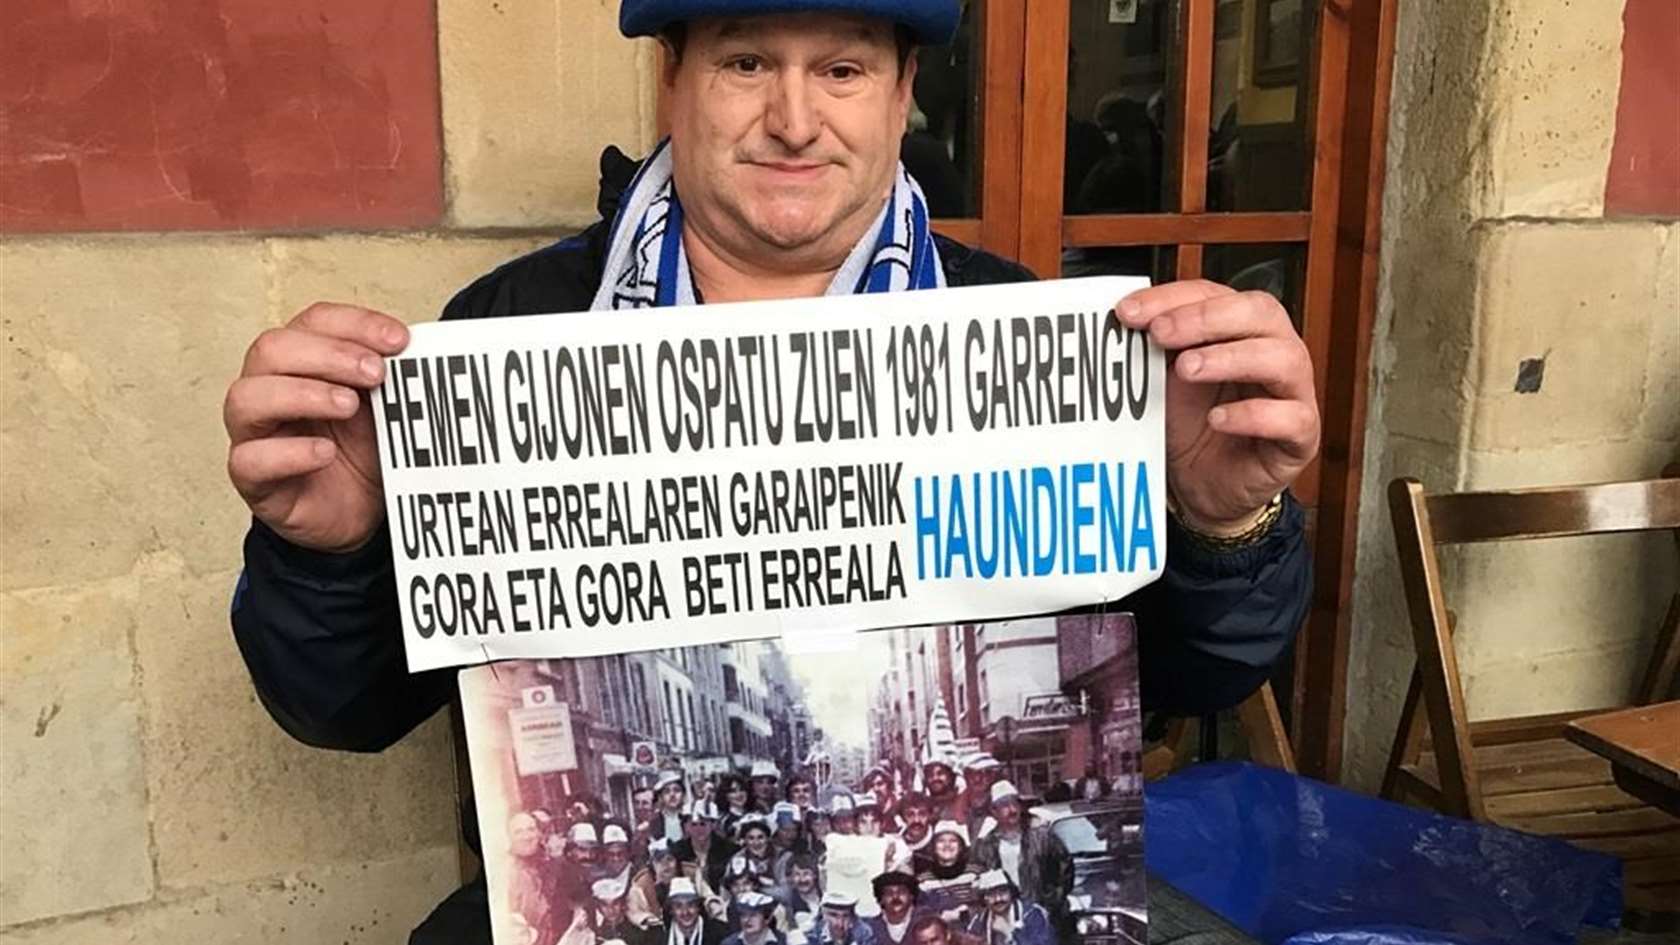 HEMEN GIJONEN OSPATU ZUEN 1981 GARRENGO
URTEAN ERREALAREN GARAIPENIK HAUNDIENA
GORA ETA GORA BETI ERREALA